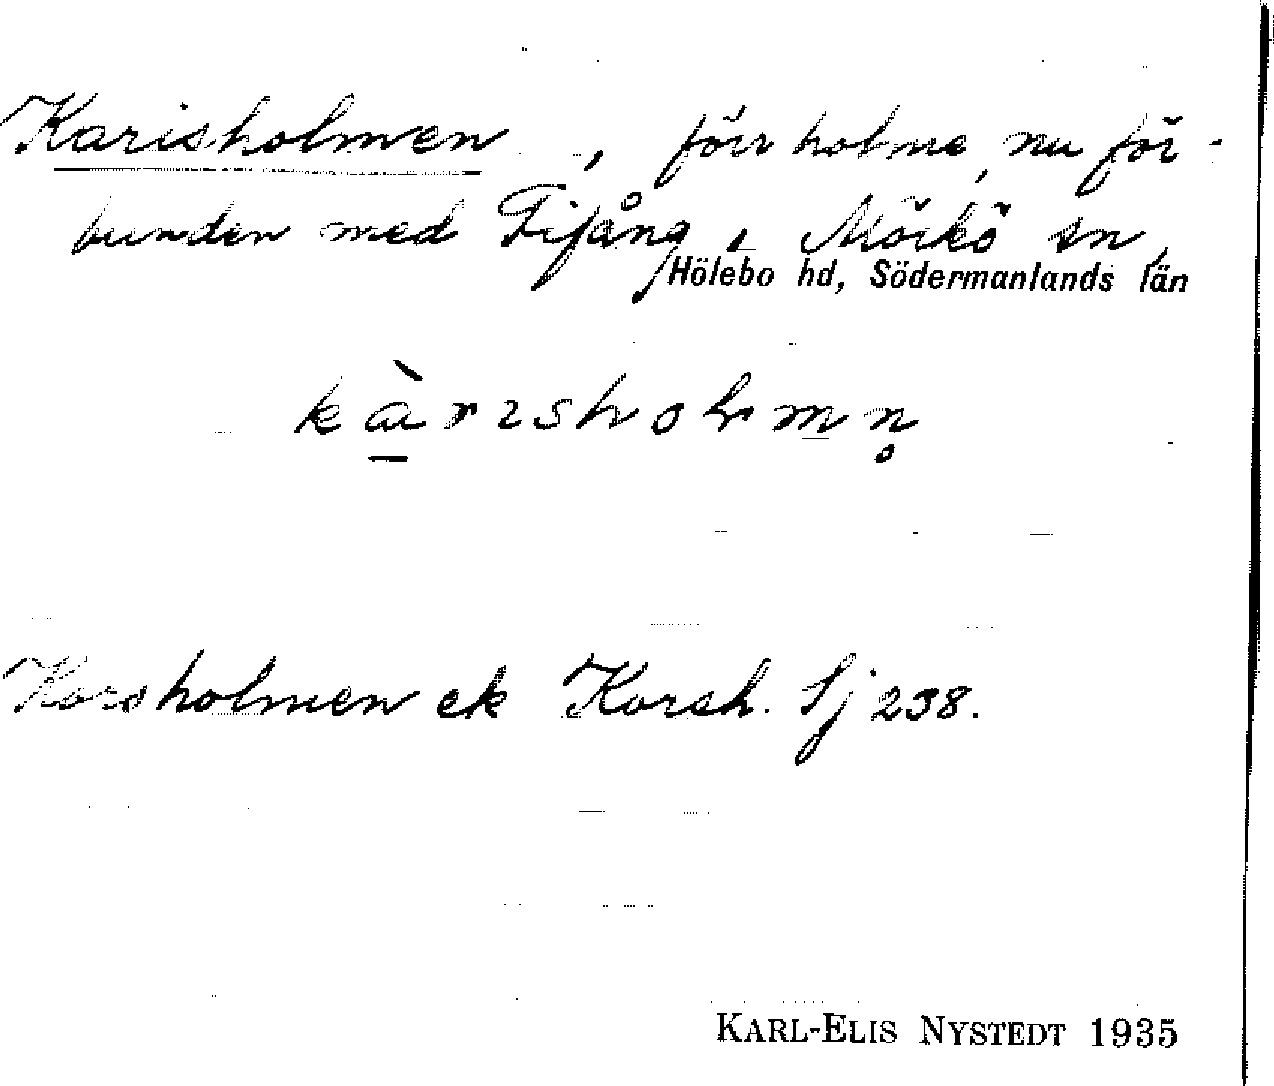 Karisholmen, förr holme, nu för-
bunden med Fifång, Mörkö sn,
Hölebo hd, Södermanlands län
kàrisholmn̥
Korsholmen ek Korsh. Sj 238.
KARL-ELIS NYSTEDT 1935